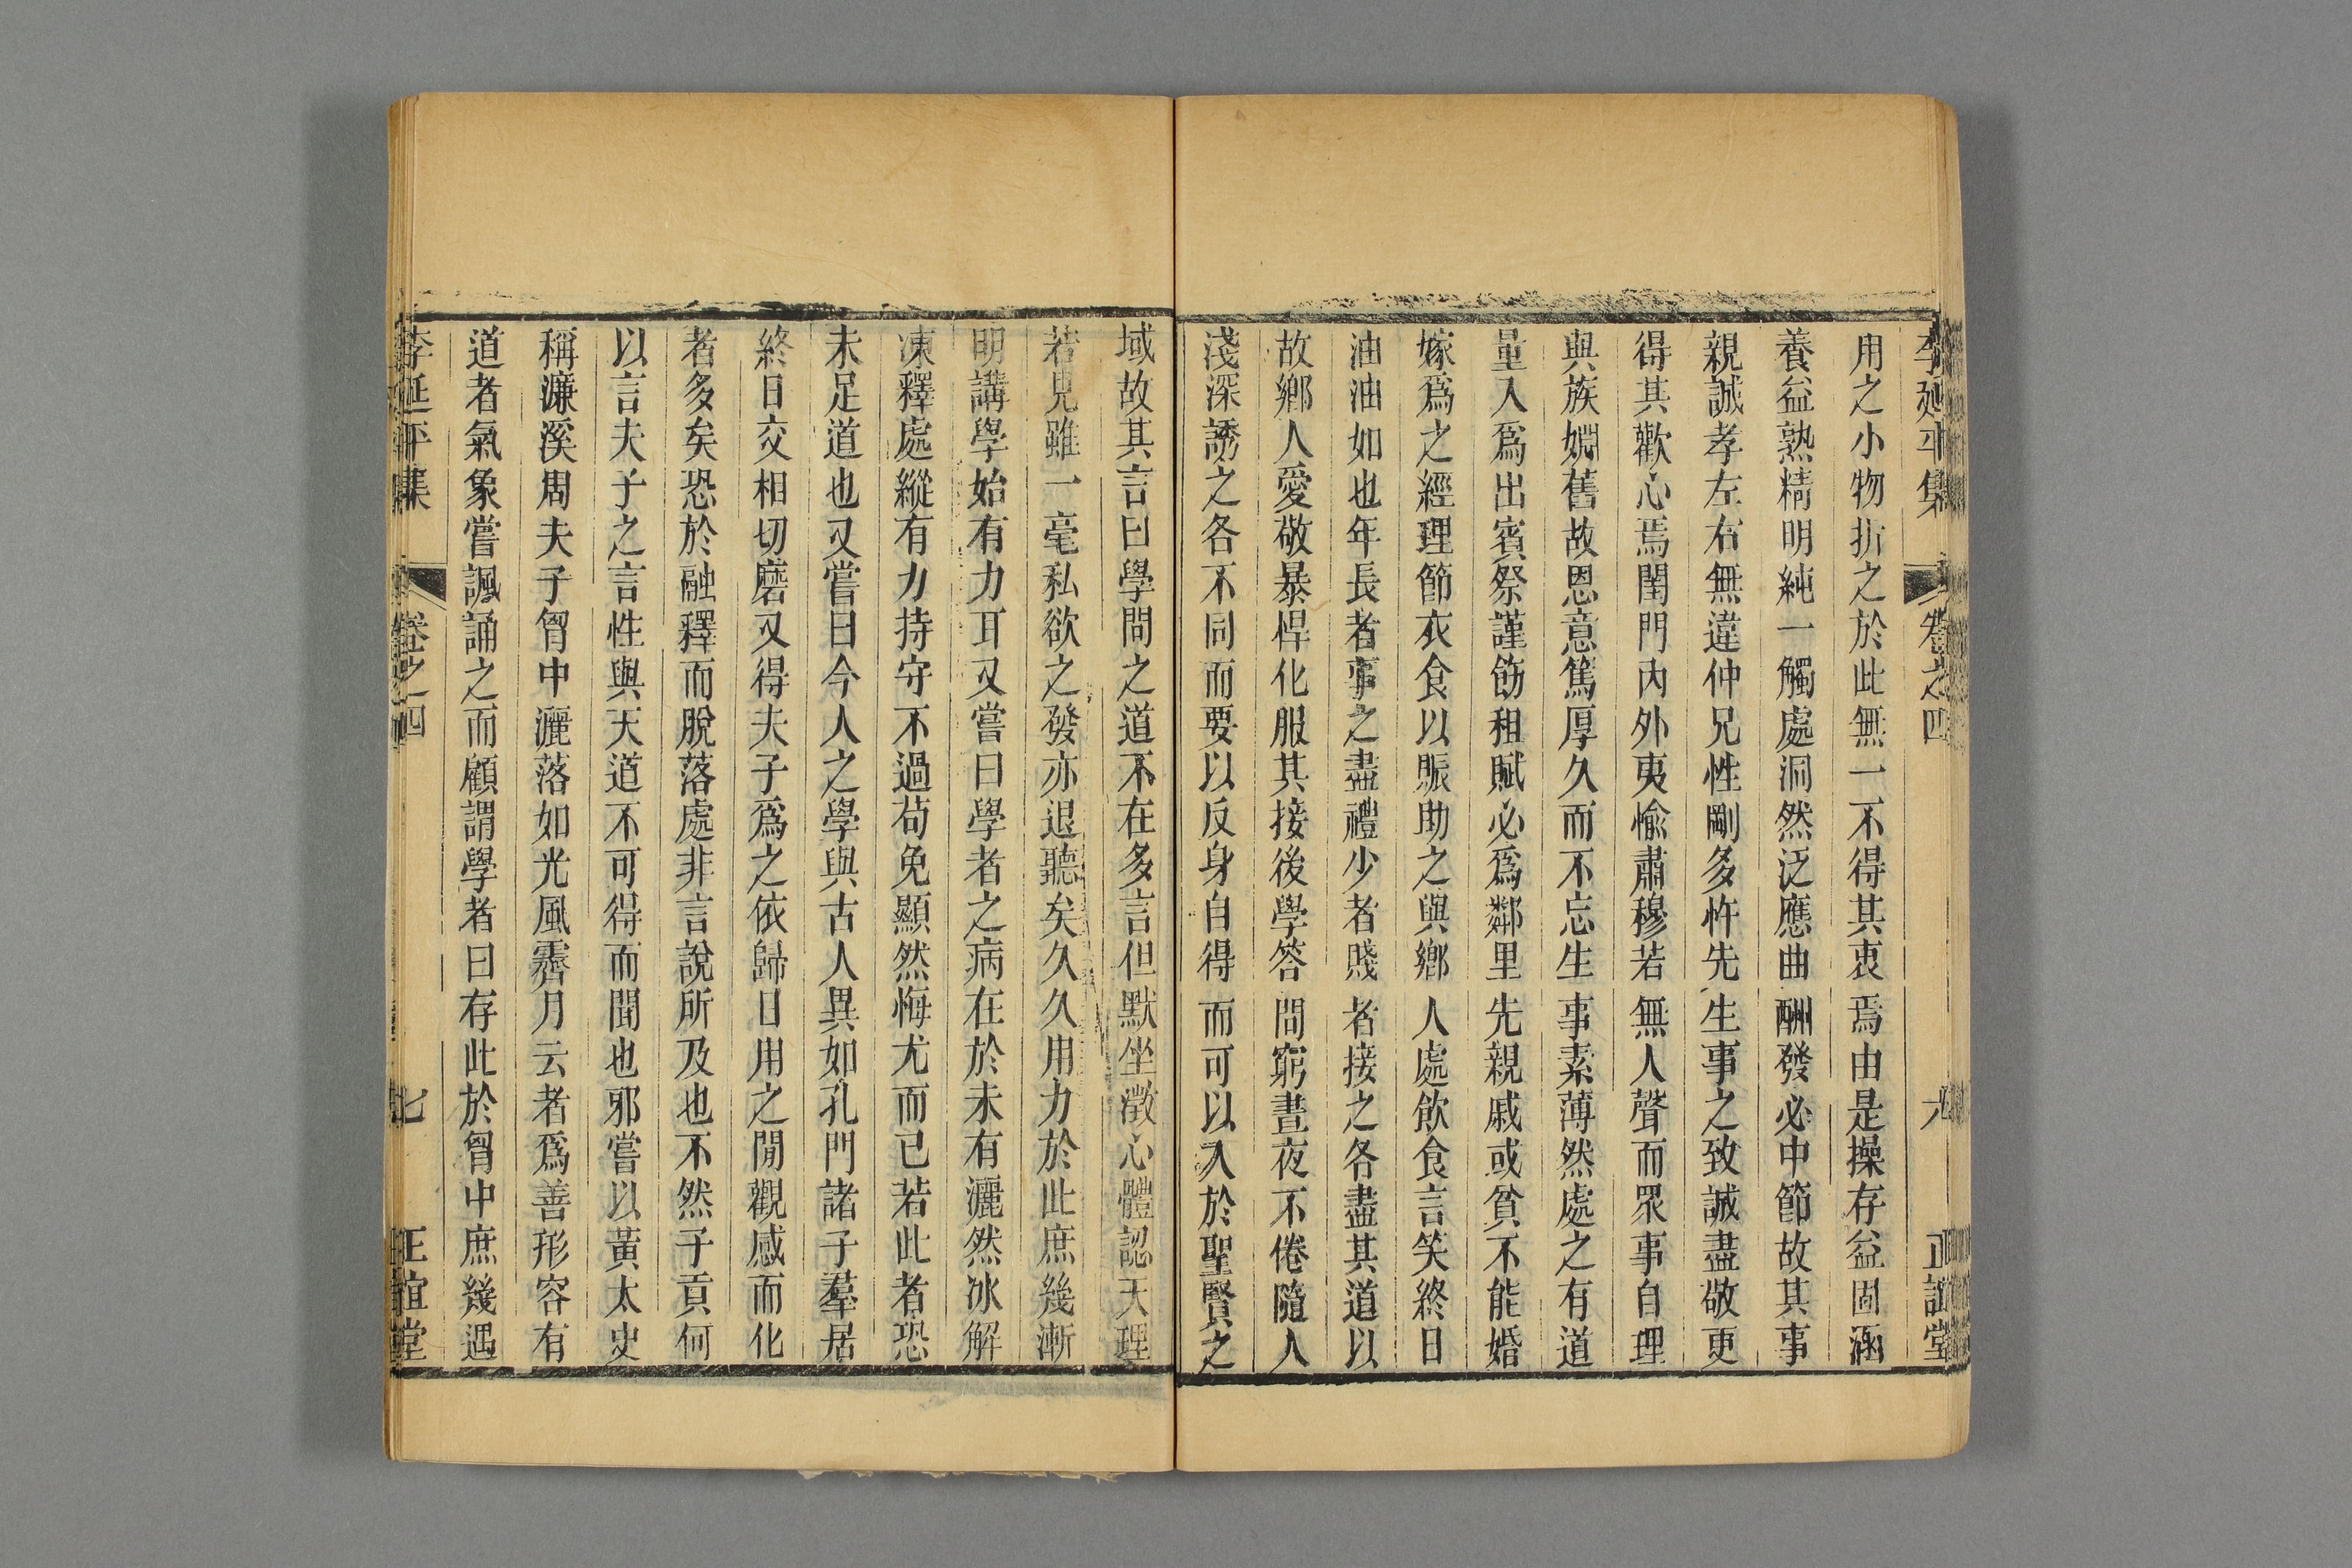 李延平集 卷之四 六 正誼堂
用之小物折之於此無一不得其衷焉由是操存益固涵
養益熟精明純一觸處洞然泛應曲酬發必中節故其事
親誠孝左右無違仲兄性剛多忤先生事之致誠盡敬更
得其歡心焉閨門內外夷愉肅穆若無人聲而眾事自理
與族婣舊故恩意篤厚久而不忘生事素薄然處之有道
量入爲出賓祭謹飭租賦必爲鄰里先親戚或貧不能婚
嫁爲之經理節衣食以賑助之與鄉人處飲食言笑終日
油油如也年長者事之盡禮少者賤者接之各盡其道以
故鄉人愛敬暴悍化服其接後學答問窮晝夜不倦隨人
淺深誘之各不同而要以反身自得而可以入於聖賢之
域故其言曰學問之道不在多言但默坐澂心體認天理
若見雖一毫私欲之發亦退聽矣久久用力於此庶幾漸
明講學始有力耳又嘗曰學者之病在於未有灑然冰解
凍釋處縱有力持守不過茍免顯然悔尤而已若此者恐
未足道也又嘗曰今人之學與古人異如孔門諸子羣居
終日交相切磨又得夫子爲之依歸日用之閒觀感而化
者多矣恐於融釋而脫落處非言說所及也不然子貢何
以言夫子之言性與天道不可得而聞也邪嘗以黃太史
稱濂溪周夫子胷中灑落如光風霽月云者爲善形容有
道者氣象嘗諷誦之而顧謂學者曰存此於胷中庶幾遇
李延平集 卷之四 七 正誼堂